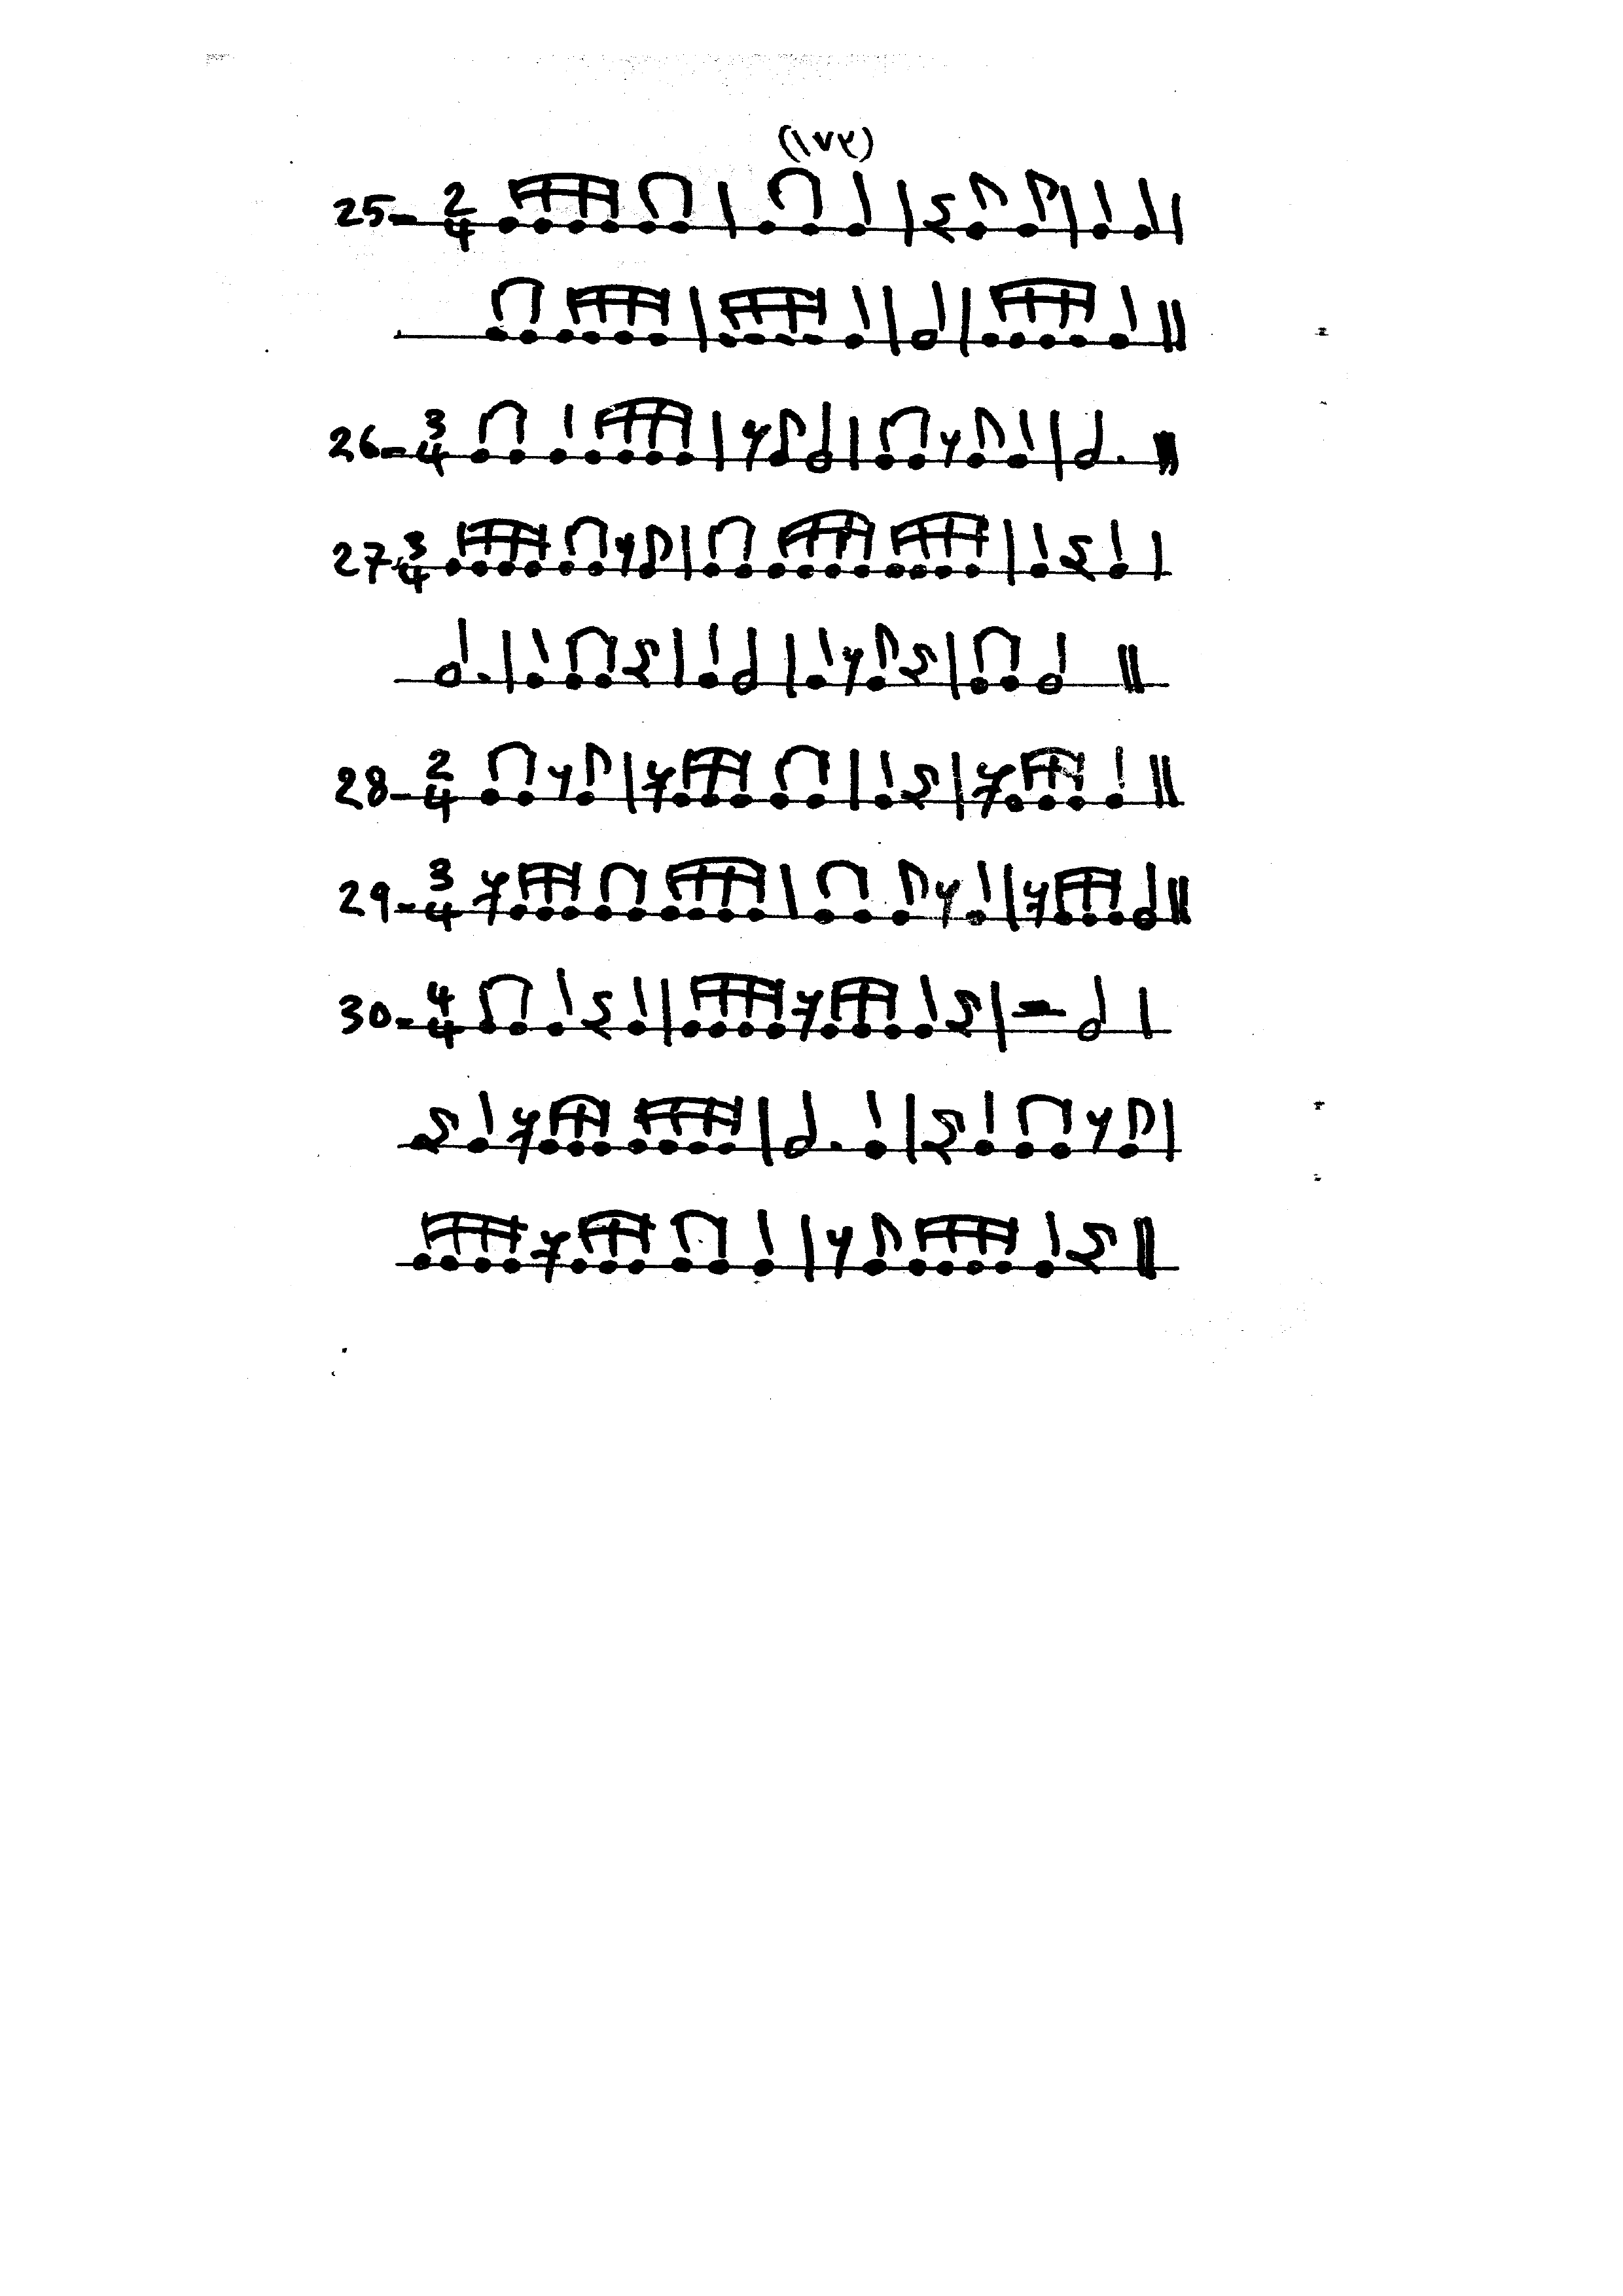 (١٧٥)
25- 2/4
26- 3/4
27- 3/4
28- 2/4
29- 3/4
30- 4/4